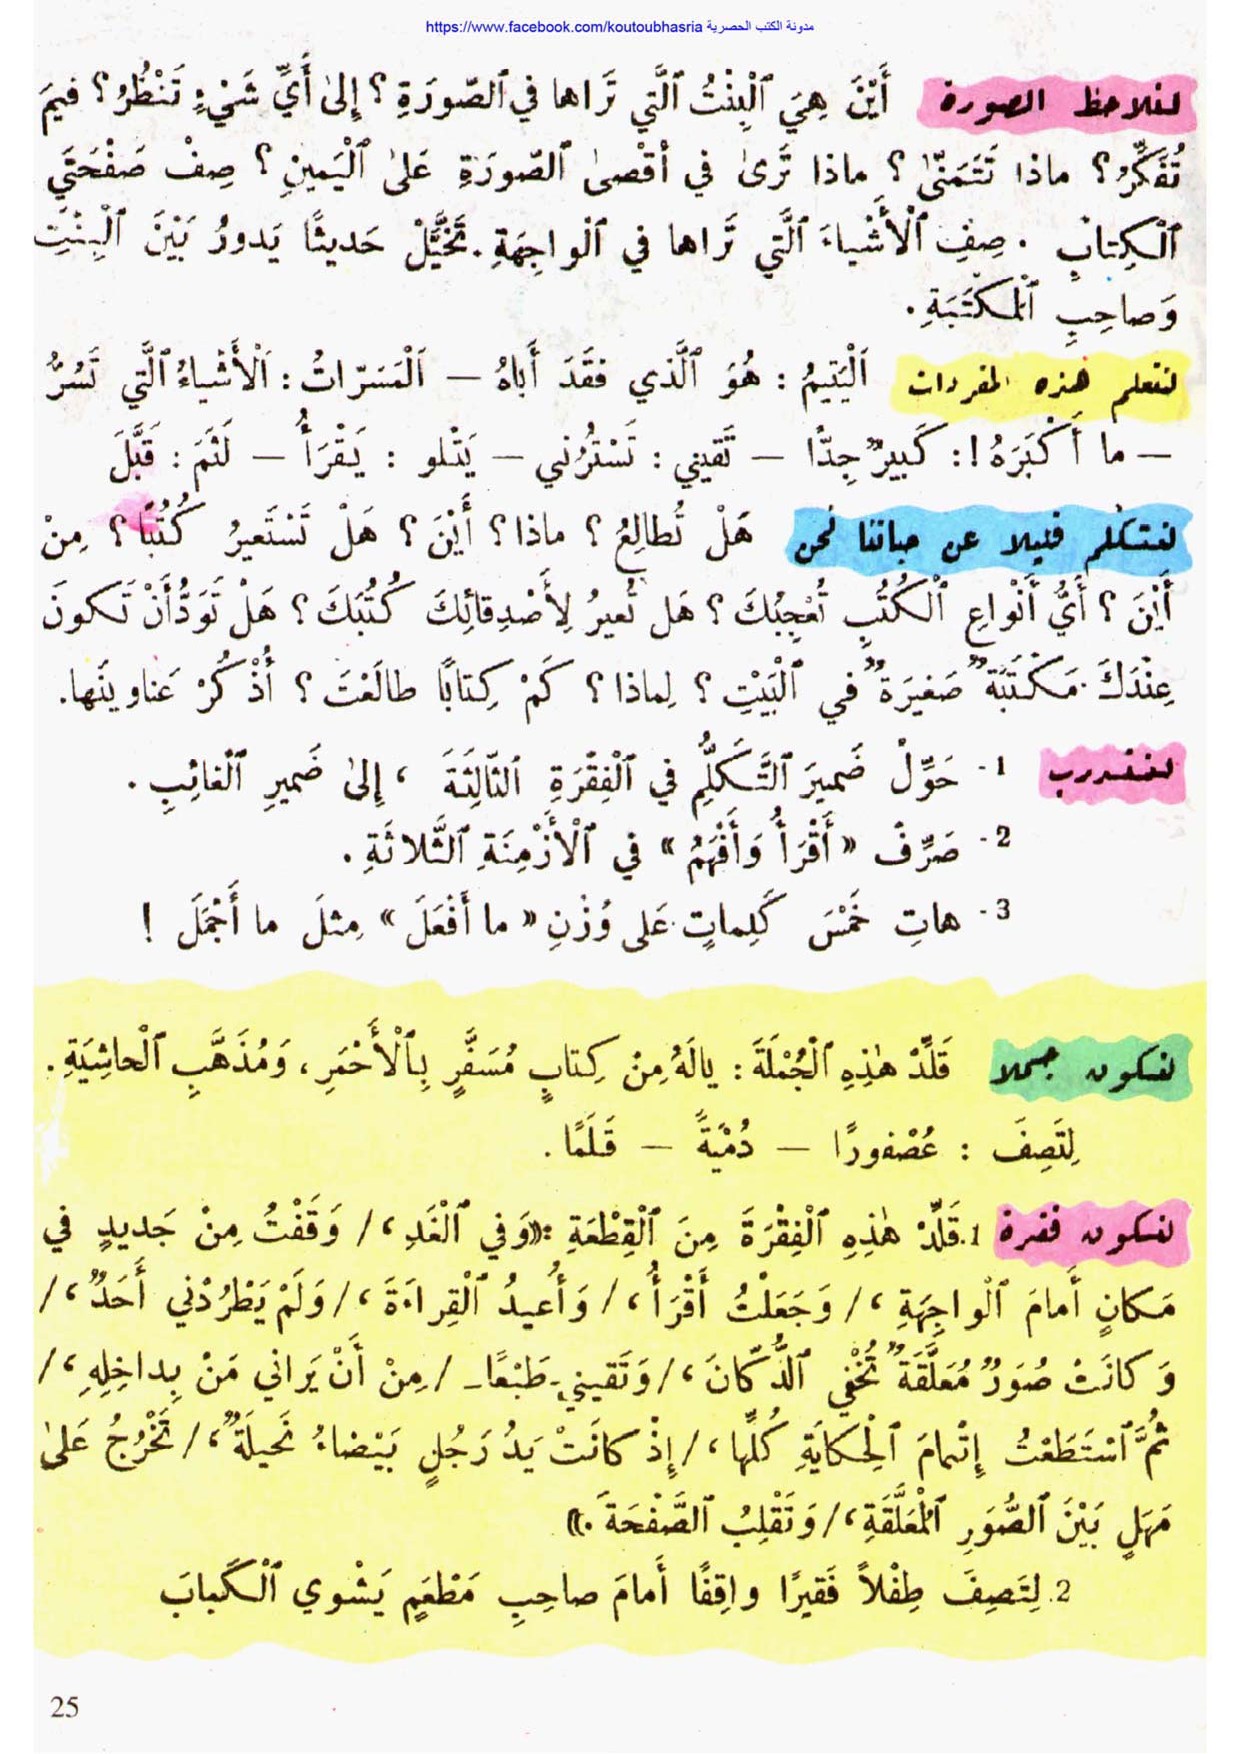 https://www.facebook.com/koutoubhasria مدونة الكتب الحصرية
لنلاحظ الصورة أَيْنَ هِيَ ٱلْبِنْتُ ٱلَّتي تَراها في ٱلصّورَةِ؟ إِلىٰ أَيِّ شَيْءٍ تَنْظُرُ؟ فيمَ
تُفَكِّرُ؟ ماذا تَتَمَنّىٰ؟ ماذا تَرىٰ في أَقْصىٰ ٱلصّورَةِ عَلىٰ ٱلْيَمينِ؟ صِفْ صَفْحَتَيِ
ٱلْكِتابِ. صِفِ ٱلْأَشْياءَ ٱلَّتي تَراها في ٱلْواجِهَةِ. تَخَيَّلْ حَديثًا يَدورُ بَيْنَ ٱلْبِنْتِ
وَصاحِبِ ٱلْمَكْتَبَةِ.
لنتعلم هذه المفردات اَلْيَتيمُ : هُوَ ٱلَّذي فَقَدَ أَباهُ – اَلْمَسَرّاتُ : اَلْأَشْياءُ ٱلَّتي تَسُرُّ
– ما أَكْبَرَهُ! : كَبيرٌ جِدًّا – تَقيني : تَسْتُرُني – يَتْلو : يَقْرَأُ – لَثَمَ : قَبَّلَ
لنتكلم قليلا عن حياتنا نحن هَلْ تُطالِعُ؟ ماذا؟ أَيْنَ؟ هَلْ تَسْتَعيرُ كُتُبًا؟ مِنْ
أَيْنَ؟ أَيُّ أَنْواعِ ٱلْكُتُبِ تُعْجِبُكَ؟ هَل تُعيرُ لِأَصْدِقائِكَ كُتُبَكَ؟ هَلْ تَوَدُّ أَنْ تَكونَ
عِنْدَكَ مَكْتَبَةٌ صَغيرَةٌ في ٱلْبَيْتِ؟ لِماذا؟ كَمْ كِتابًا طالَعْتَ؟ أُذْكُرْ عَناوينَها.
لنتدرب 1- حَوِّلْ ضَميرَ ٱلتَّكَلُّمِ في ٱلْفِقْرَةِ ٱلثّالِثَةِ ، إِلىٰ ضَميرِ ٱلْغائِبِ.
2- صَرِّفْ « أَقْرَأُ وَأَفْهَمُ » في ٱلْأَزْمِنَةِ ٱلثَّلاثَةِ.
3- هاتِ خَمْسَ كَلِماتٍ عَلى وَزْنِ « ما أَفْعَلَ » مِثلَ ما أَجْمَلَ !
لنكون جملا قَلِّدْ هٰذِهِ ٱلْجُمْلَةَ : يالَهُ مِنْ كِتابٍ مُسَفَّرٍ بِٱلْأَحْمَرِ، وَمُذَهَّبِ ٱلْحاشِيَةِ.
لِتَصِفَ : عُصْفورًا – دُمْيَةً – قَلَمًا.
لنكون فقرة 1. قَلِّدْ هٰذِهِ ٱلْفِقْرَةَ مِنَ ٱلْقِطْعَةِ :«وَفي ٱلْغَدِ،/ وَقَفْتُ مِنْ جَديدٍ في
مَكانٍ أَمامَ ٱلْواجِهَةِ،/ وَجَعَلْتُ أَقْرَأُ،/ وَأُعيدُ ٱلْقِراءَةَ،/ وَلَمْ يَطْرُدْني أَحَدٌ،/
وَكانَتْ صُوَرٌ مُعَلَّقَةٌ تُخْفي ٱلدُّكّانَ،/ وَتَقيني - طَبْعًا - / مِنْ أَنْ يَراني مَنْ بِداخِلِهِ،/
ثُمَّ ٱسْتَطَعْتُ إِتْمامَ ٱلْحِكايَةِ كُلِّها،/ إِذْ كانَتْ يَدُ رَجُلٍ بَيْضاءُ نَحيلَةٌ،/ تَخْرُجُ عَلىٰ
مَهَلٍ بَيْنَ ٱلصُّوَرِ ٱلْمُعَلَّقَةِ،/ وَتَقْلِبُ ٱلصَّفْحَةَ.»
2. لِتَصِفَ طِفْلاً فَقيرًا واقِفًا أَمامَ صاحِبِ مَطْعَمٍ يَشْوي ٱلْكَبابَ
25